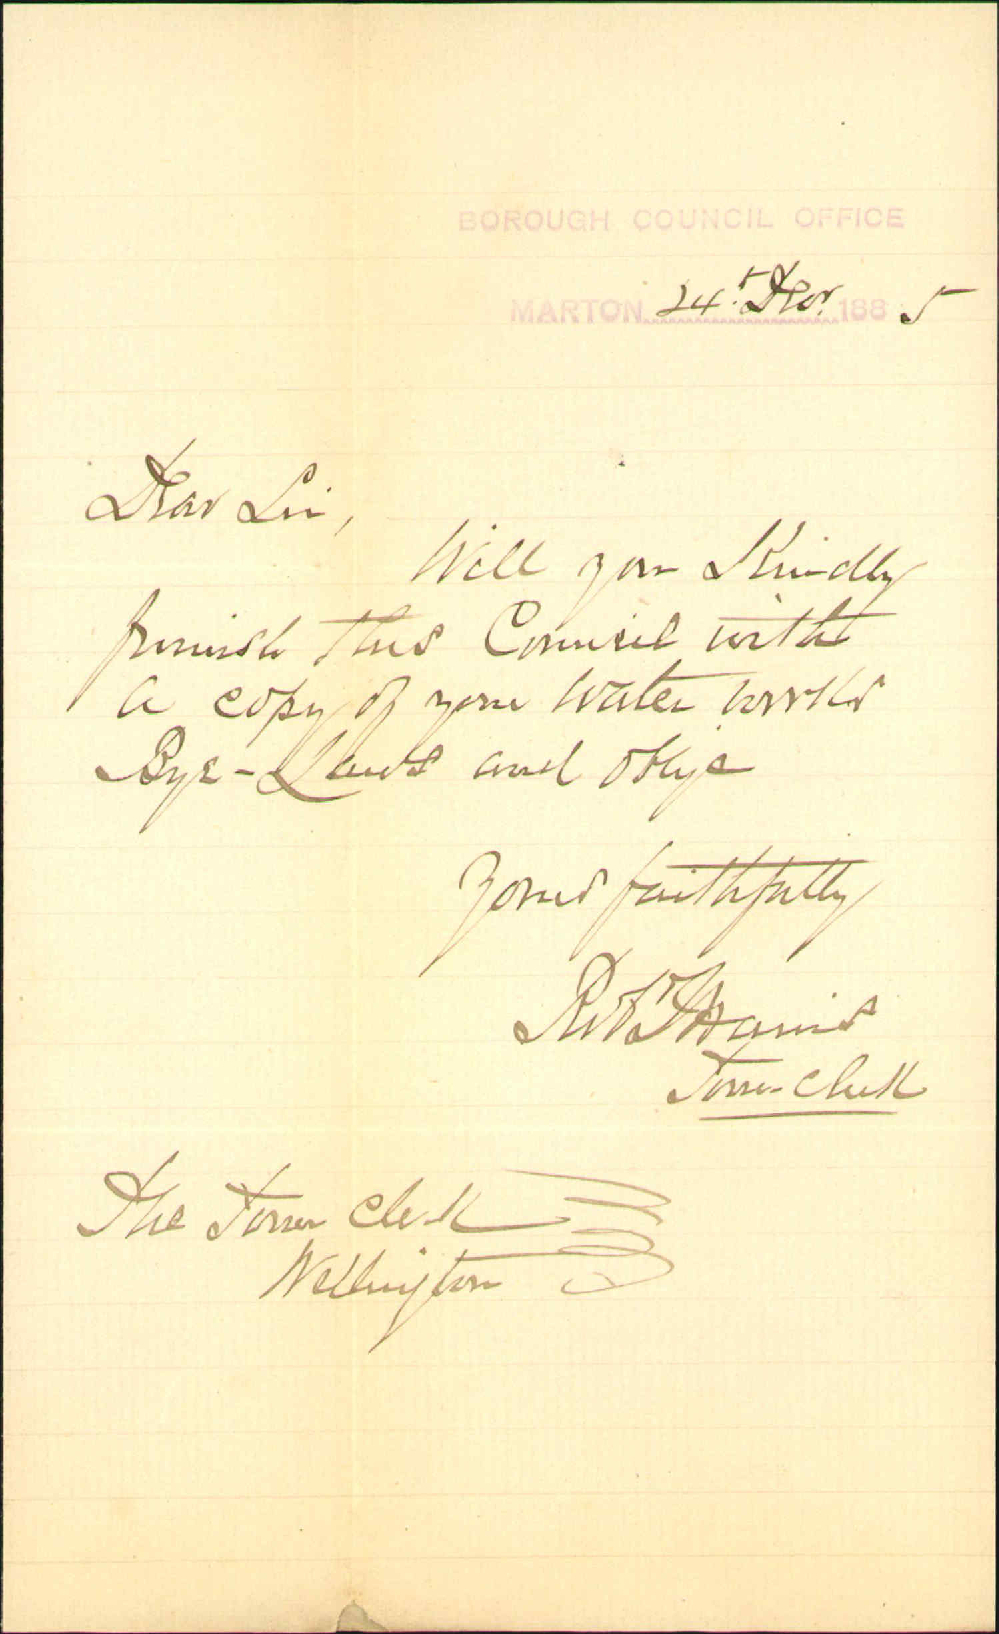 BOROUGH COUNCIL OFFICE
MARTON 24th Decr. 1885
Dear Sir,
Will you Kindly
furnish this Council with
a copy of your Water works
Bye-Laws and oblige
Yours faithfully
Robt Harris
Town Clerk
The Town Clerk
Wellington